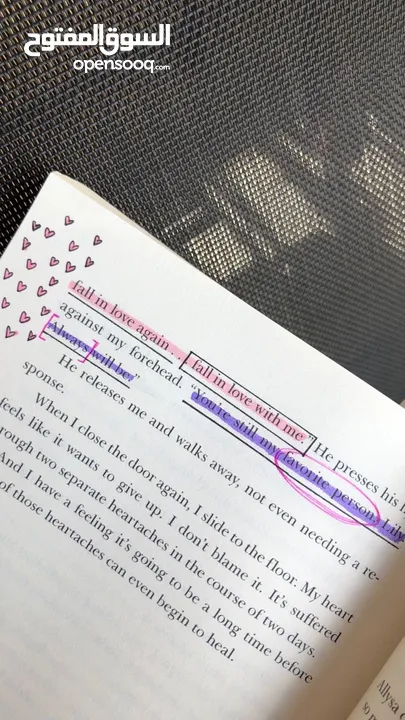 السوق المفتوح
opensooq.com
fall in love again... fall in love with me." He presses his
against my forehead. "You're still my favorite person, Lily.
Always will be."
He releases me and walks away, not even needing a re-
sponse.
When I close the door again, I slide to the floor. My heart
feels like it wants to give up. I don't blame it. It's suffered
rough two separate heartaches in the course of two days.
And I have a feeling it's going to be a long time before
of those heartaches can even begin to heal.
Allysa